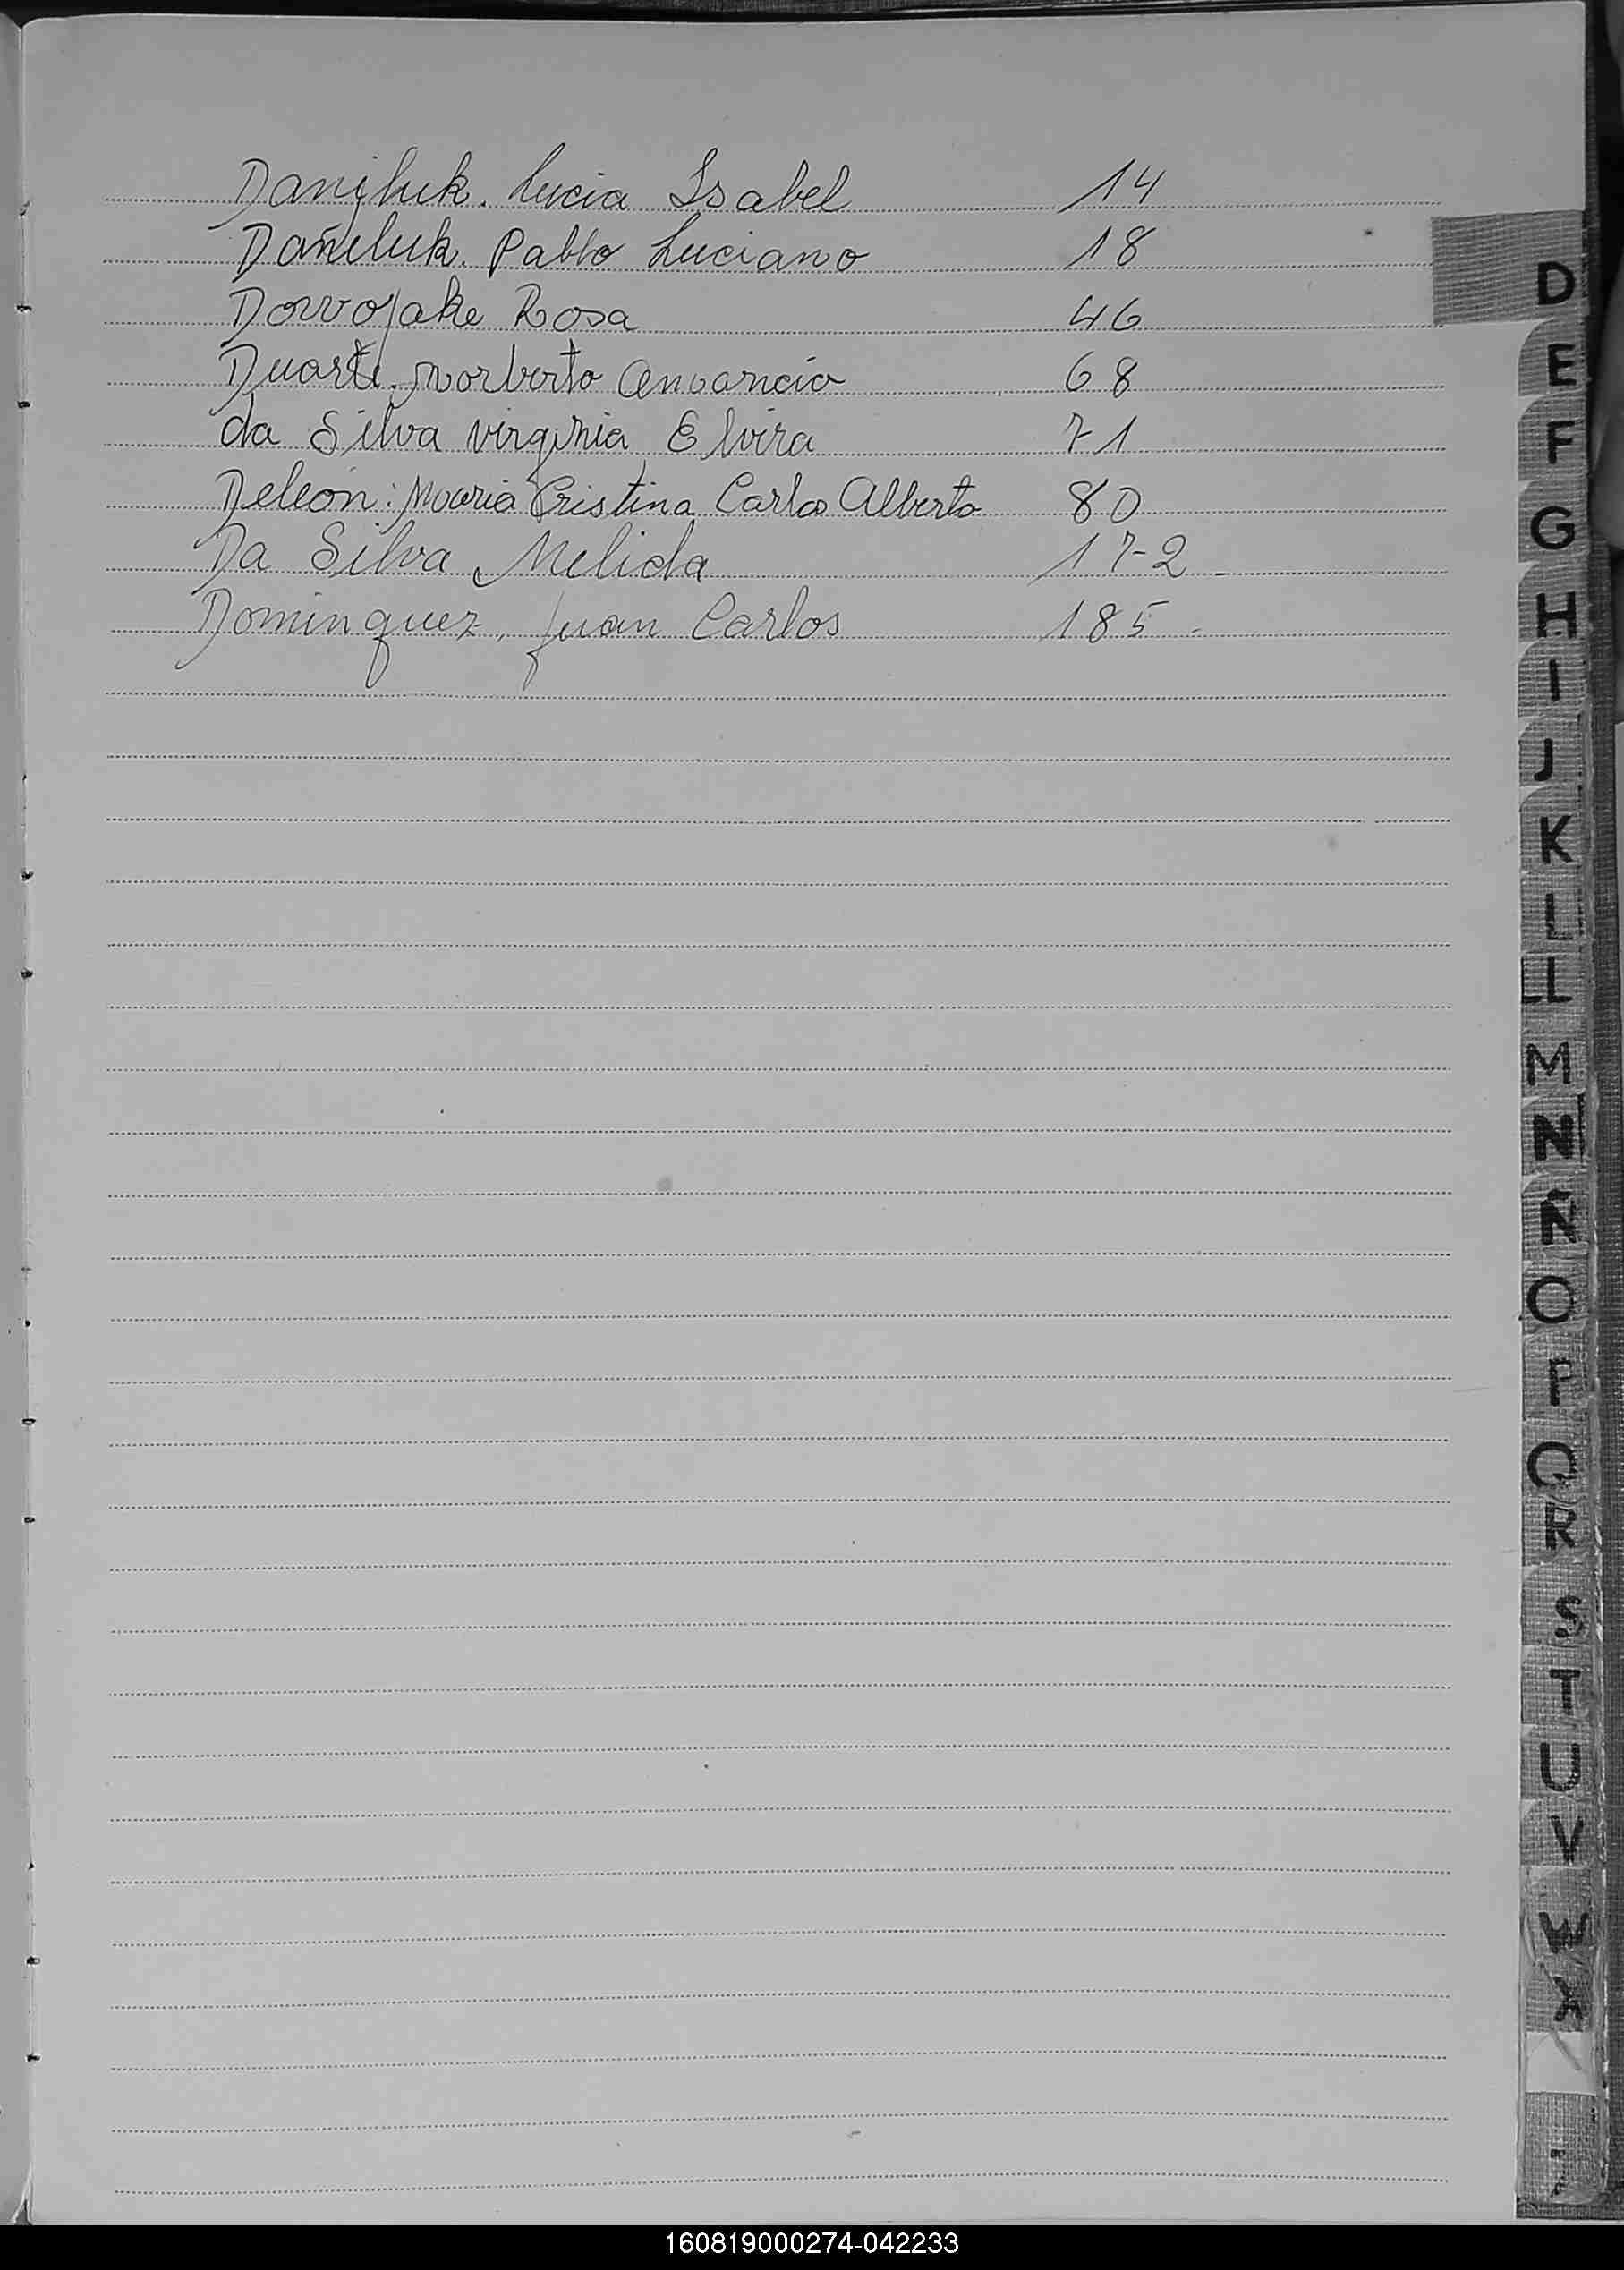 Daniluk. Lucia Isabel 14
Dañiluk. Pablo Luciano 18
Rosa 46
Duarte. Norberto 68
da Silva virginia Elvira 71
Deleón: Maria Cristina Carlos Alberto 80
Da Silva Melida 172-
Dominquez, Juan Carlos 185-
D
E
F
G
H
I
J
K
L
LL
M
N
Ñ
O
P
Q
R
S
T
U
V
W
X
160819000274-042233